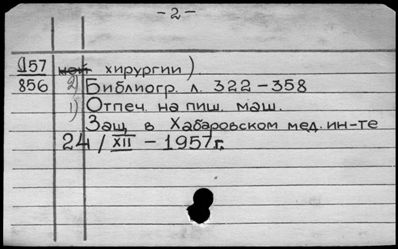 -2-
Д57 ной хирургии)
856 2) Библиогр. л. 322-358
1) Отпеч. на пиш. маш.
Защ. в Хабаровском мед. ин-те
24/XII - 1957г.